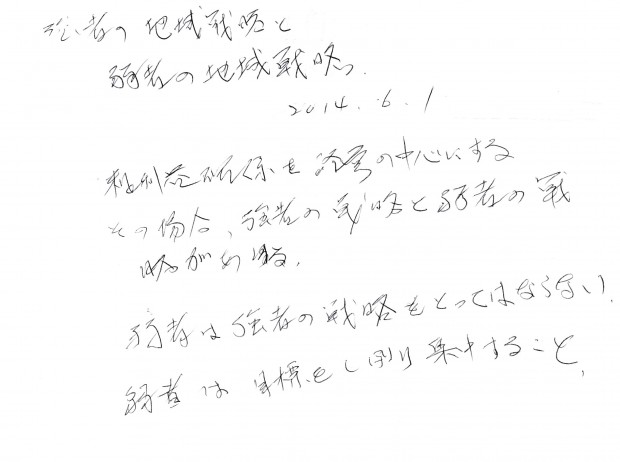 強者の地域戦略と
弱者の地域戦略。
2014.6.1
利益関係を経営の中心にする
その場合、強者の戦略と弱者の戦
略がある。
弱者は強者の戦略をとってはならない。
弱者は目標をしぼり集中すること。